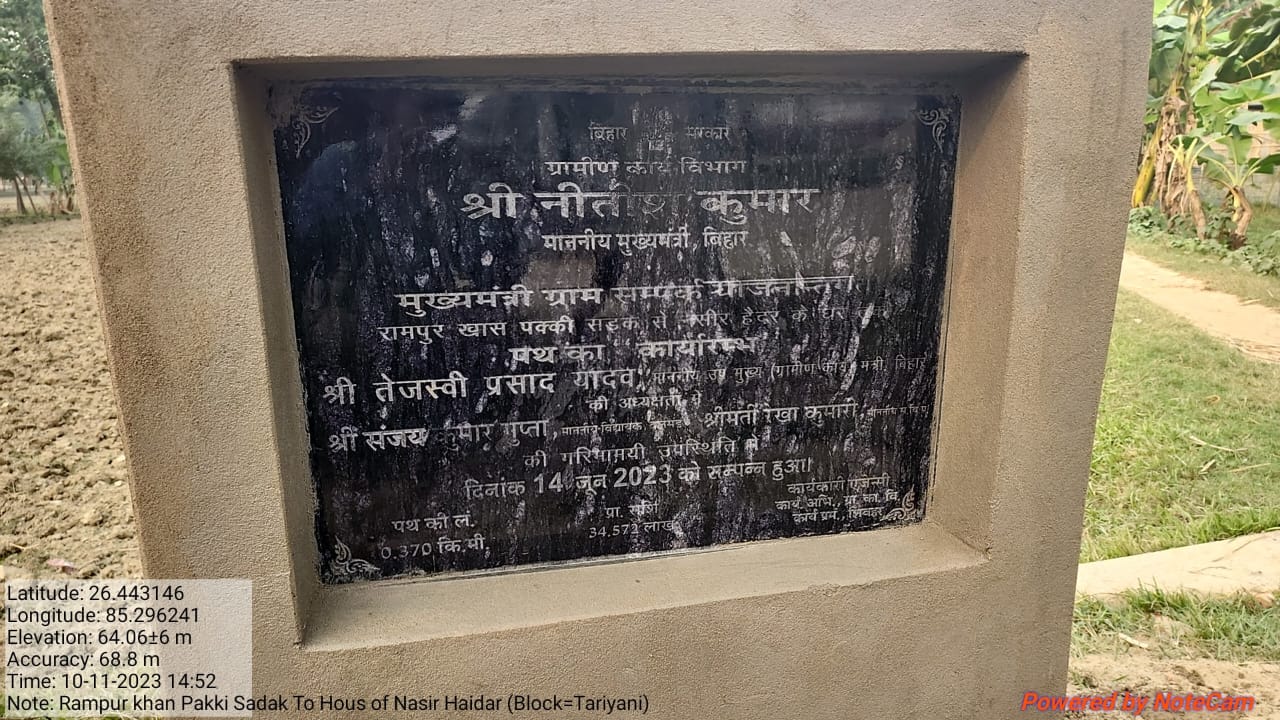 बिहार सरकार
ग्रामीण कार्य विभाग
श्री नीतीश कुमार
माननीय मुख्यमंत्री, बिहार
मुख्यमंत्री ग्राम सम्पर्क योजनान्तर्गत
रामपुर खास पक्की सड़क से नसीर हैदर के घर तक
पथ का कार्यारम्भ
श्री तेजस्वी प्रसाद यादव, माननीय उप मुख्य (ग्रामीण कार्य) मंत्री, बिहार
की अध्यक्षता में
श्री संजय कुमार गुप्ता, माननीय विधायक, श्रीमती रेखा कुमारी,
की गरिमामयी उपस्थिति में
दिनांक 14 जून 2023 को सम्पन्न हुआ।
पथ की लं.
0.370 कि.मी.
प्रा. राशि
34.572 लाख
कार्यकारी एजेन्सी
कार्य. अभि. ग्रा. का. वि.
कार्य प्रम., शिवहर
Latitude: 26.443146
Longitude: 85.296241
Elevation: 64.06±6 m
Accuracy: 68.8 m
Time: 10-11-2023 14:52
Note: Rampur khan Pakki Sadak To Hous of Nasir Haidar (Block=Tariyani)
Powered by NoteCam